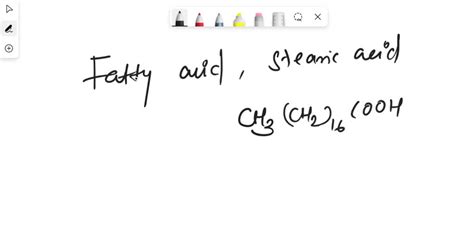 Fatty acid, Stearic acid
CH₃(CH₂)₁₆COOH